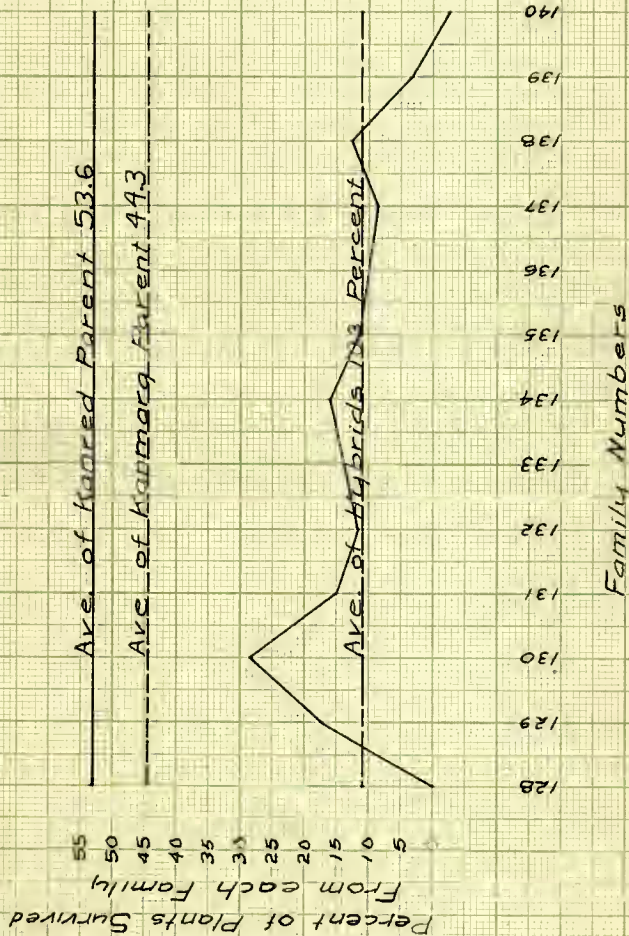 Percent of Plants Survived
From each Family
55
50
45
40
35
30
25
20
15
10
5
0
Ave. of Kanred Parent 53.6
Ave. of Kanmarq Parent 44.3
Ave. of Hybrids Percent
128 129 130 131 132 133 134 135 136 137 138 139 140
Family Numbers